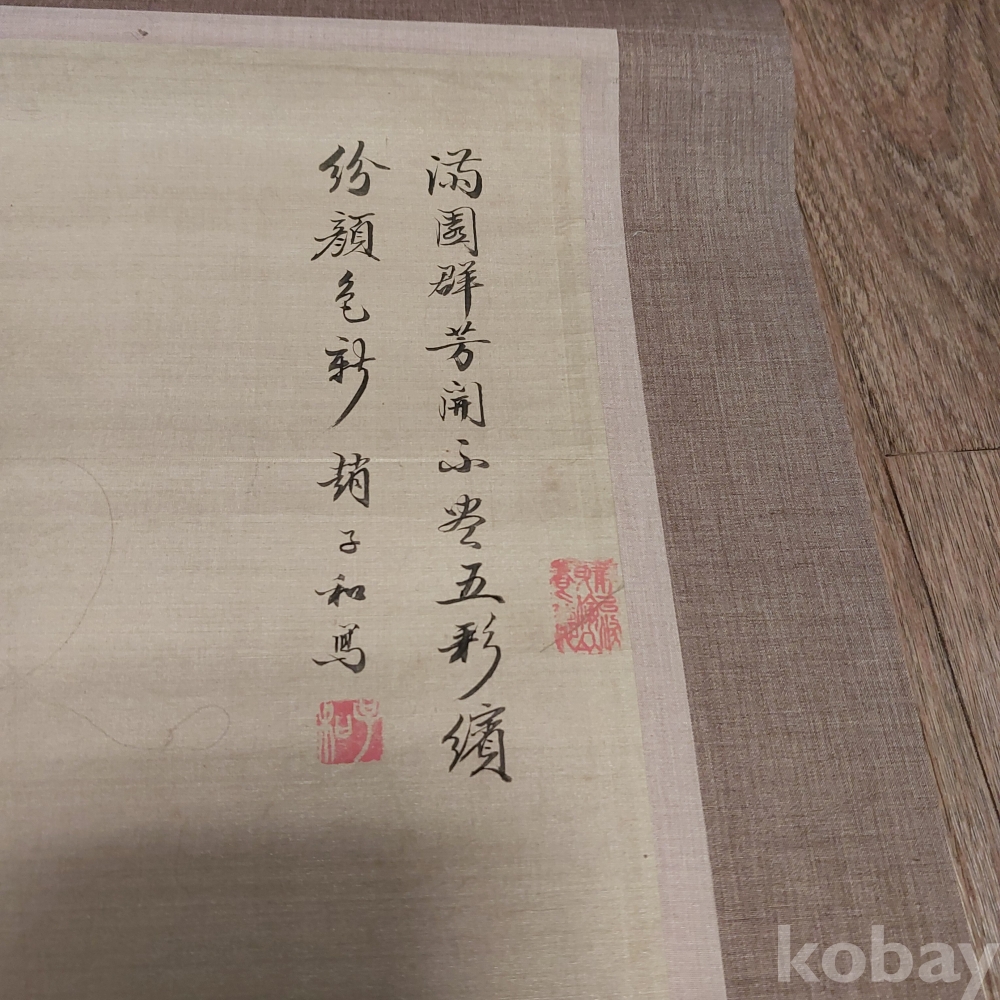 滿園群芳開不尽五彩繽
紛顏色新 趙子和寫
子和
kobay